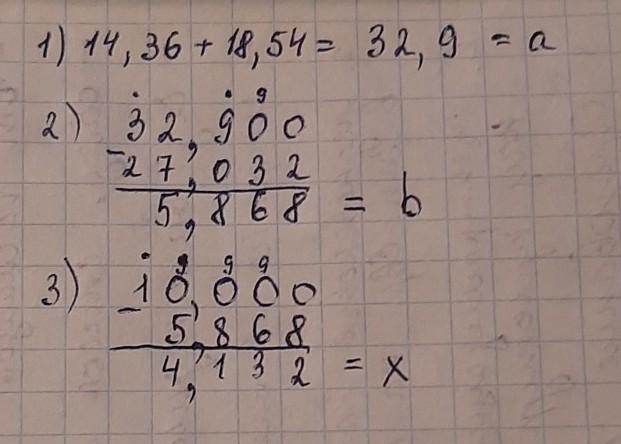 1) 14,36 + 18,54 = 32,9 = a
9
2) 32,900
- 27,032
5,868 = b
9 9 9
3) - 10,000
5,868
4,132 = x